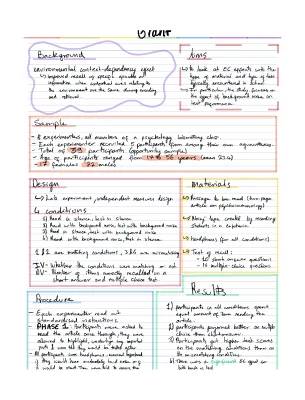 Grant
Background
environmental context-dependency effect
↳ Improved recall of specific episodes or
information when contextual cues relating to
the environment are the same during encoding
and retrieval
Aims
↳ To look at CC effects with the
type of material and type of tests
typically encountered in school
↳ In particular, the study focuses on
the effect of background noise on
test performance
Sample
- 8 experimenters, all members of a psychology laboratory class.
- Each experimenter recruited 5 participants from among their own acquaintances.
- Total of 39 participants (opportunity sample)
- Age of participants ranged from 17 to 56 years (mean 23.4)
- 17 females 22 males
Design
↳ Lab experiment, independent measures design
4 conditions
1) Read in silence, test in silence
2) Read with background noise, test with background noise
3) Read in silence, test with background noise
4) Read with background noise, test in silence
1 & 2 are matching conditions, 3 & 4 are mismatching
IV - Whether the conditions were matching or not
DV - Number of items correctly recalled in a
short answer and multiple choice test
Materials
↳ Passage to be read (two page
article on psychoimmunology)
↳ Noisy tape created by recording
students in a cafeteria
↳ Headphones (for all conditions)
↳ Test of recall:
- 10 short answer questions
- 16 multiple choice questions
Procedure
- Each experimenter read out
standardised instructions.
- PHASE 1: Participants were asked to
read the article once through, they were
allowed to highlight, underline any important
parts & were told they would be tested after
- All participants wore headphones
Results
1) participants in all conditions spent
equal amount of time reading the
article.
2) participants performed better on multiple
choice than short answer
3) Participants got higher test scores
on the matching conditions than on
the mismatching condition.
4) There was a significant